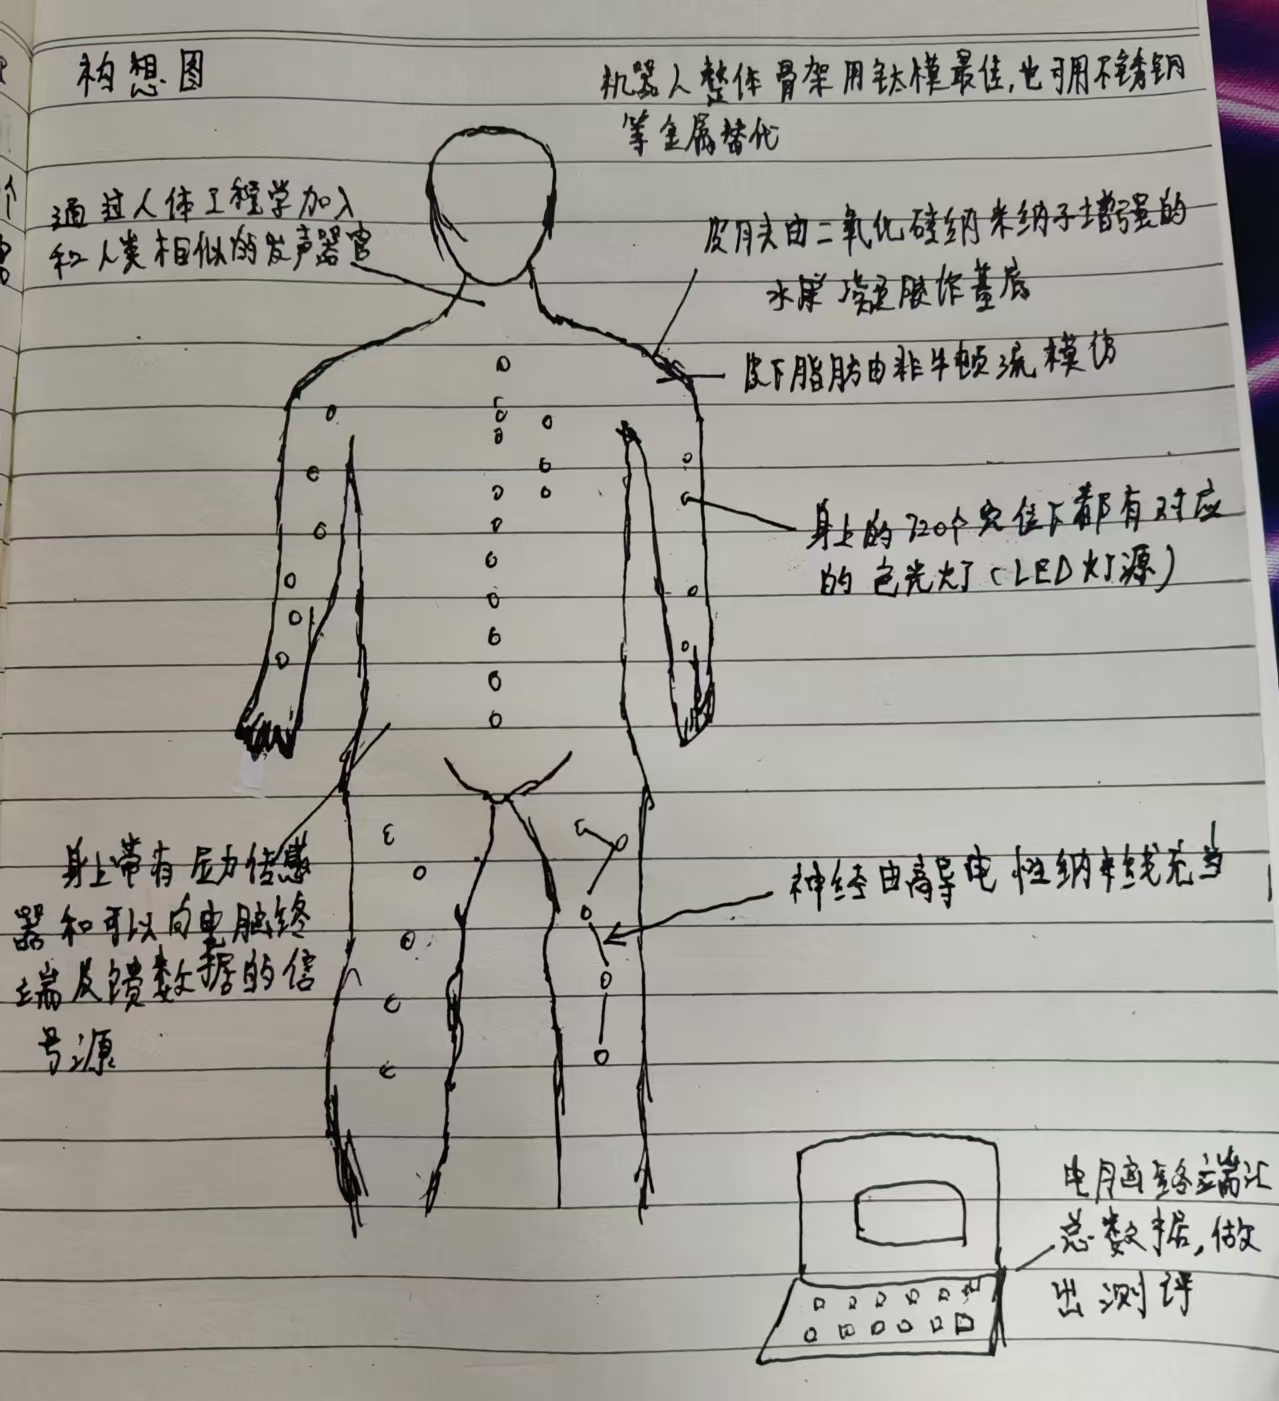 构想图
机器人整体骨架用钛模最佳,也可用不锈钢
等金属替代
通过人体工程学加入
和人类相似的发声器官
皮肤由二氧化硅纳米纳子增强的
水凝胶作基底
皮下脂肪由非牛顿流模仿
身上的720个穴位下都有对应
的色光灯(LED灯源)
身上带有压力传感
器和可以向电脑终
端反馈数据的信
号源
神经由高导电性纳米线充当
电脑终端汇
总数据,做
出测评